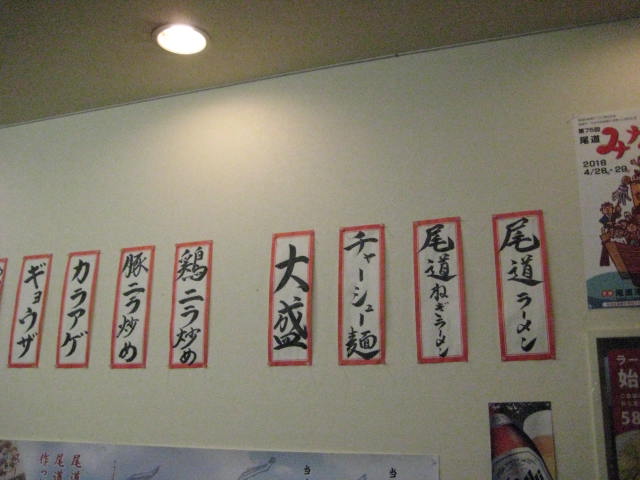 尾道ラーメン
尾道ねぎラーメン
チャーシュー麺
大盛
鶏ニラ炒め
豚ニラ炒め
カラアゲ
ギョウザ
第75回
尾道
み
2018
4/28
29
ラー
始
58
尾道
尾道
作っ